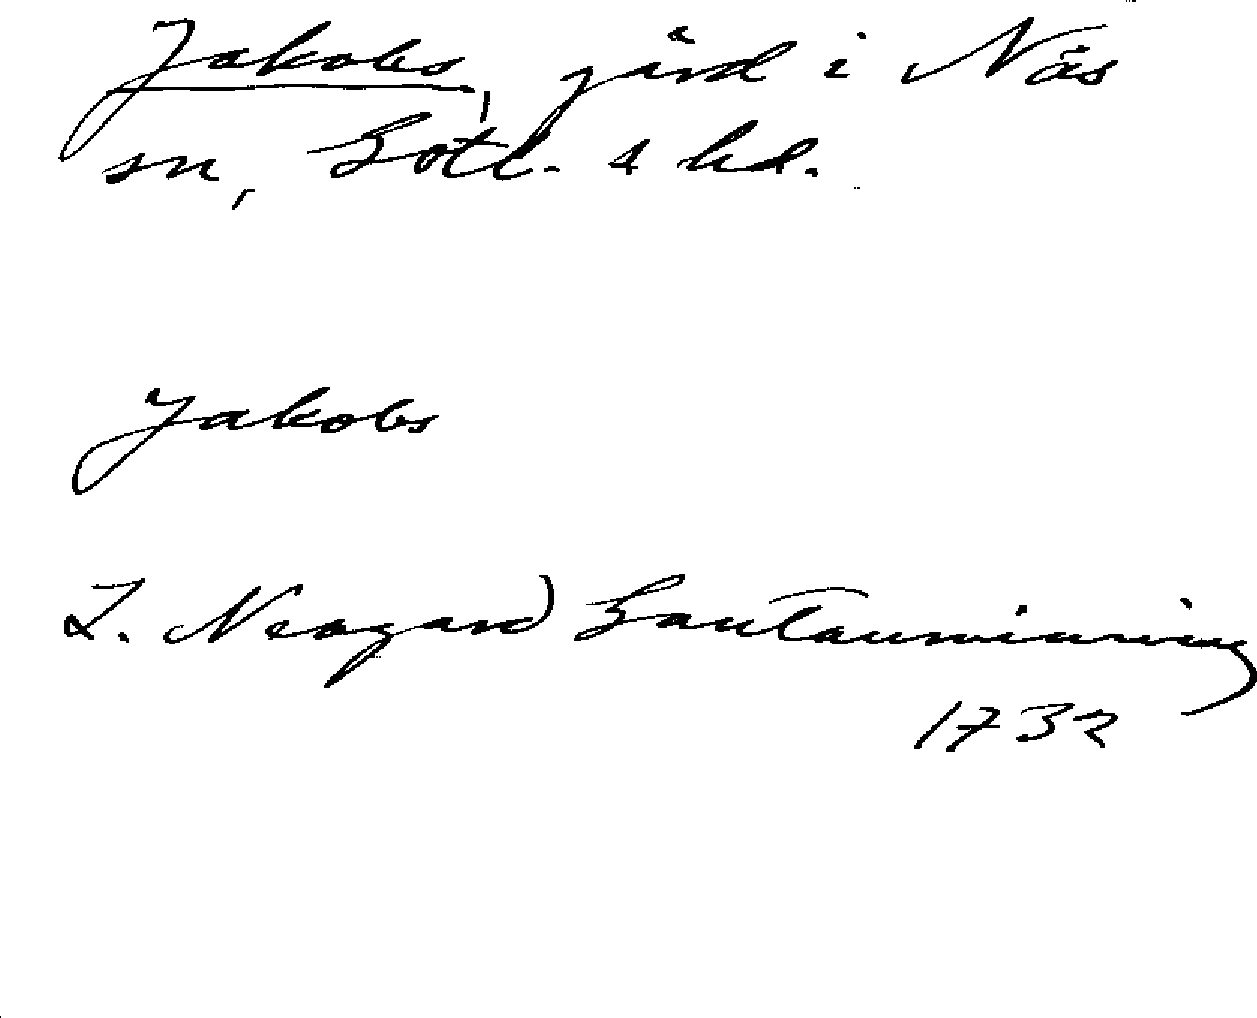 Jakobs, gård i Näs
sn, Gotl. s hd.
Jakobs
L. Neogard Gautauminning
1732